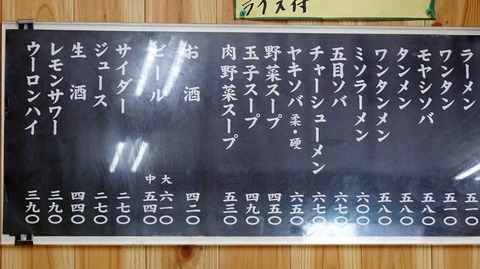 ライス付
ラーメン 五一〇
ワンタン 五一〇
モヤシソバ 五八〇
タンメン 五八〇
ワンタンメン 五八〇
ミソラーメン 六〇〇
五目ソバ 六七〇
チャーシューメン 六七〇
ヤキソバ 柔・硬 六五〇
野菜スープ 五三〇
玉子スープ 四九〇
肉野菜スープ 五三〇
お酒 四二〇
ビール 大 六一〇
中 五四〇
サイダー 二七〇
ジュース 二七〇
生酒 四四〇
レモンサワー 三九〇
ウーロンハイ 三九〇